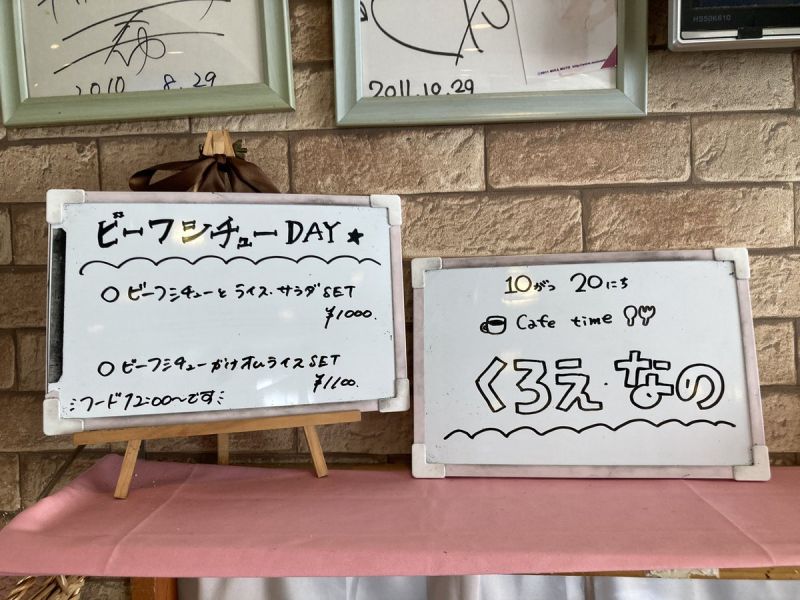 HS50K610
2010 8.29
2011.10.29
ビーフシチューDAY★
○ビーフシチューとライス・サラダSET
¥1000.
○ビーフシチューがけオムライスSET
¥1100.
フード12:00〜です
10がつ 20にち
Cafe time
くろえ・なの